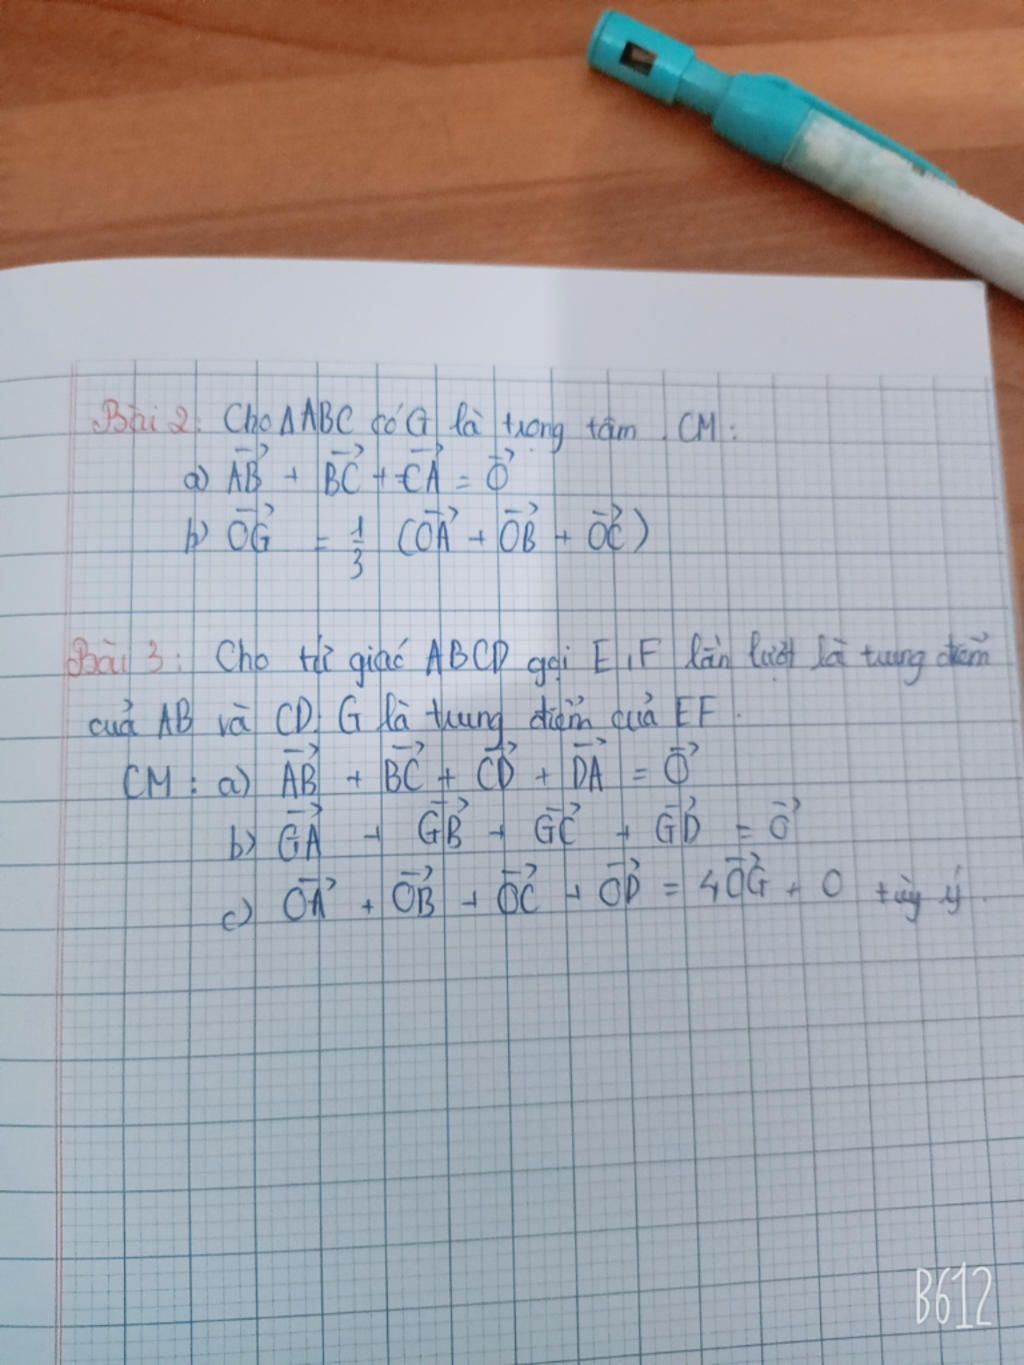 Bài 2: Cho ΔABC có G là trọng tâm. CM:
a) $\overrightarrow{AB}$ + $\overrightarrow{BC}$ + $\overrightarrow{CA}$ = $\overrightarrow{0}$
b) $\overrightarrow{OG}$ = $\frac{1}{3}$ ($\overrightarrow{OA}$ + $\overrightarrow{OB}$ + $\overrightarrow{OC}$)
Bài 3: Cho tứ giác ABCD gọi E, F lần lượt là trung điểm
của AB và CD, G là trung điểm của EF.
CM: a) $\overrightarrow{AB}$ + $\overrightarrow{BC}$ + $\overrightarrow{CD}$ + $\overrightarrow{DA}$ = $\overrightarrow{0}$
b) $\overrightarrow{GA}$ + $\overrightarrow{GB}$ + $\overrightarrow{GC}$ + $\overrightarrow{GD}$ = $\overrightarrow{0}$
c) $\overrightarrow{OA}$ + $\overrightarrow{OB}$ + $\overrightarrow{OC}$ + $\overrightarrow{OD}$ = 4$\overrightarrow{OG}$, O tùy ý.
B612